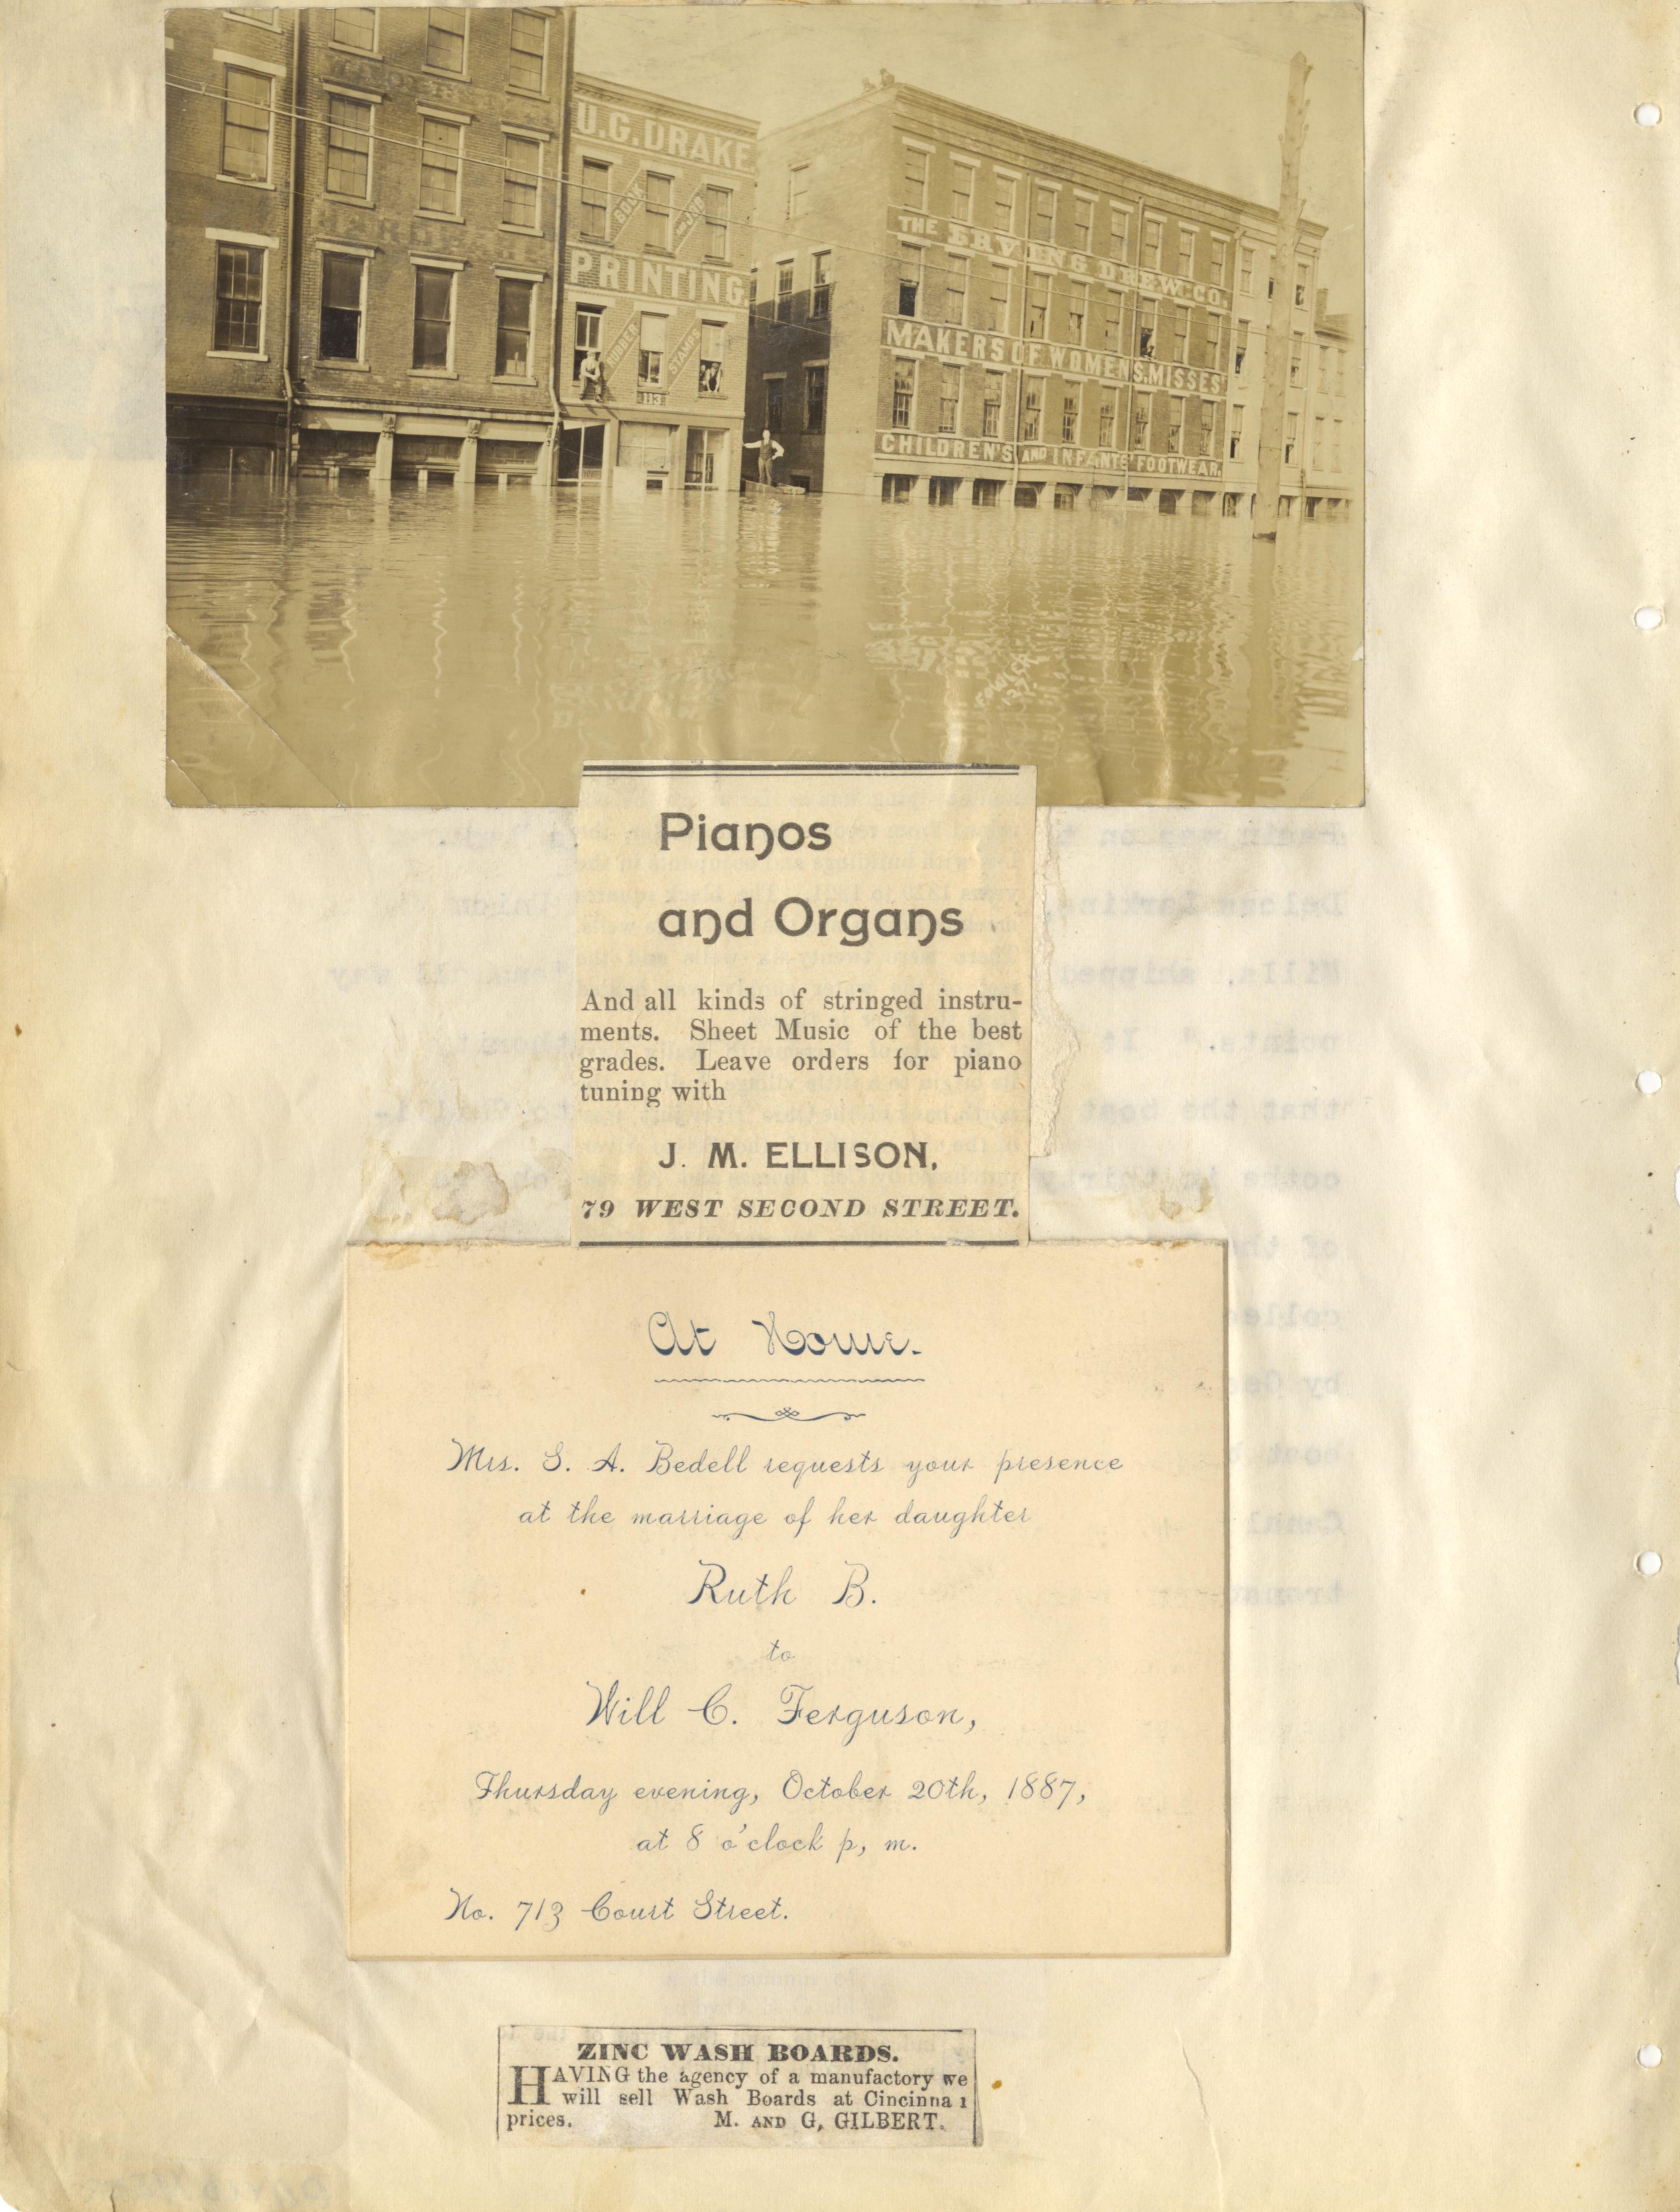 U.G. DRAKE
BOOK AND JOB
PRINTING.
RUBBER STAMPS
113
HARDWARE
THE IRVING DREW CO.
MAKERS OF WOMEN'S, MISSES'
CHILDREN'S AND INFANTS' FOOTWEAR.
FOWLER
Pianos
and Organs
And all kinds of stringed instru-
ments. Sheet Music of the best
grades. Leave orders for piano
tuning with
J. M. ELLISON,
79 WEST SECOND STREET.
At Home.
Mrs. S. A. Bedell requests your presence
at the marriage of her daughter
Ruth B.
to
Will C. Ferguson,
Thursday evening, October 20th, 1887,
at 8 o'clock p, m.
No. 713 Court Street.
ZINC WASH BOARDS.
HAVING the agency of a manufactory we
will sell Wash Boards at Cincinna i
prices. M. AND G, GILBERT.